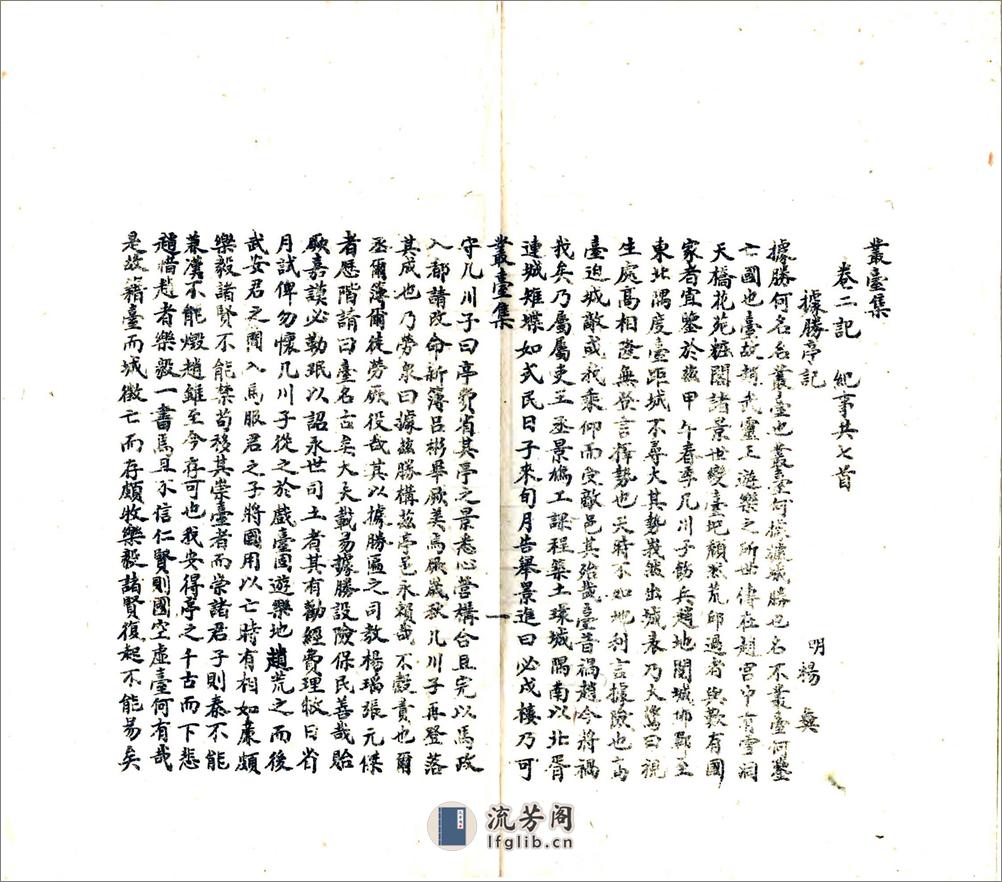 叢臺集
卷二記　紀事共七首
據勝亭記　明楊彝
據勝何名名叢臺也叢臺何據據咸勝也名不叢臺何鑒
亡國也臺故趙武靈王遊樂之所世傳在趙宮中有雪洞
天橋花苑粧閣諸景世變臺圮頹然荒邱過者興歎有國
家者宜鑒於茲甲午春季几川子飭兵趙地閱城邯鄲至
東北隅度臺距城不尋丈其勢峩然出城表乃大驚曰視
生處高相隆無登言擇勢也天時不如地利言據險也高
臺迫城敵或我乘仰而受敵邑其殆哉臺昔禍趙今將禍
我矣乃屬屬吏王丞景鳩工課程築土環城隅南以北胥
連城雉堞如式民日子來旬月告舉景進曰必戍樓乃可
叢臺集　一
守几川子曰亭費省其亭之景悉心營構合且完以馬政
入郡請改命新簿呂彬畢厥美焉厥歲秋几川子再登落
其成也乃勞衆曰據茲勝構茲亭邑永賴哉不穀責也爾
丞爾簿爾徒勞厥役哉其以據勝匾之司教楊瑀張元傑
者歷階請曰臺名古矣大夫載易據勝設險保民善哉貽
厥嘉謨必勒珉以詔永世司土者其有勸經費理牧日省
月試俾勿懷几川子從之於戲臺囿遊樂地趙荒之而後
武安君之閒入馬服君之子將國用以亡時有相如廉頗
樂毅諸賢不能禁苟移其崇臺者而崇諸君子則秦不能
兼漢不能燬趙雖至今存可也我安得亭之千古而下悲
趙惜趙者樂毅一書焉且不信仁賢則國空虛臺何有哉
是故籍臺而城微亡而存頗牧樂毅諸賢復起不能易矣
流芳阁
lfglib.cn